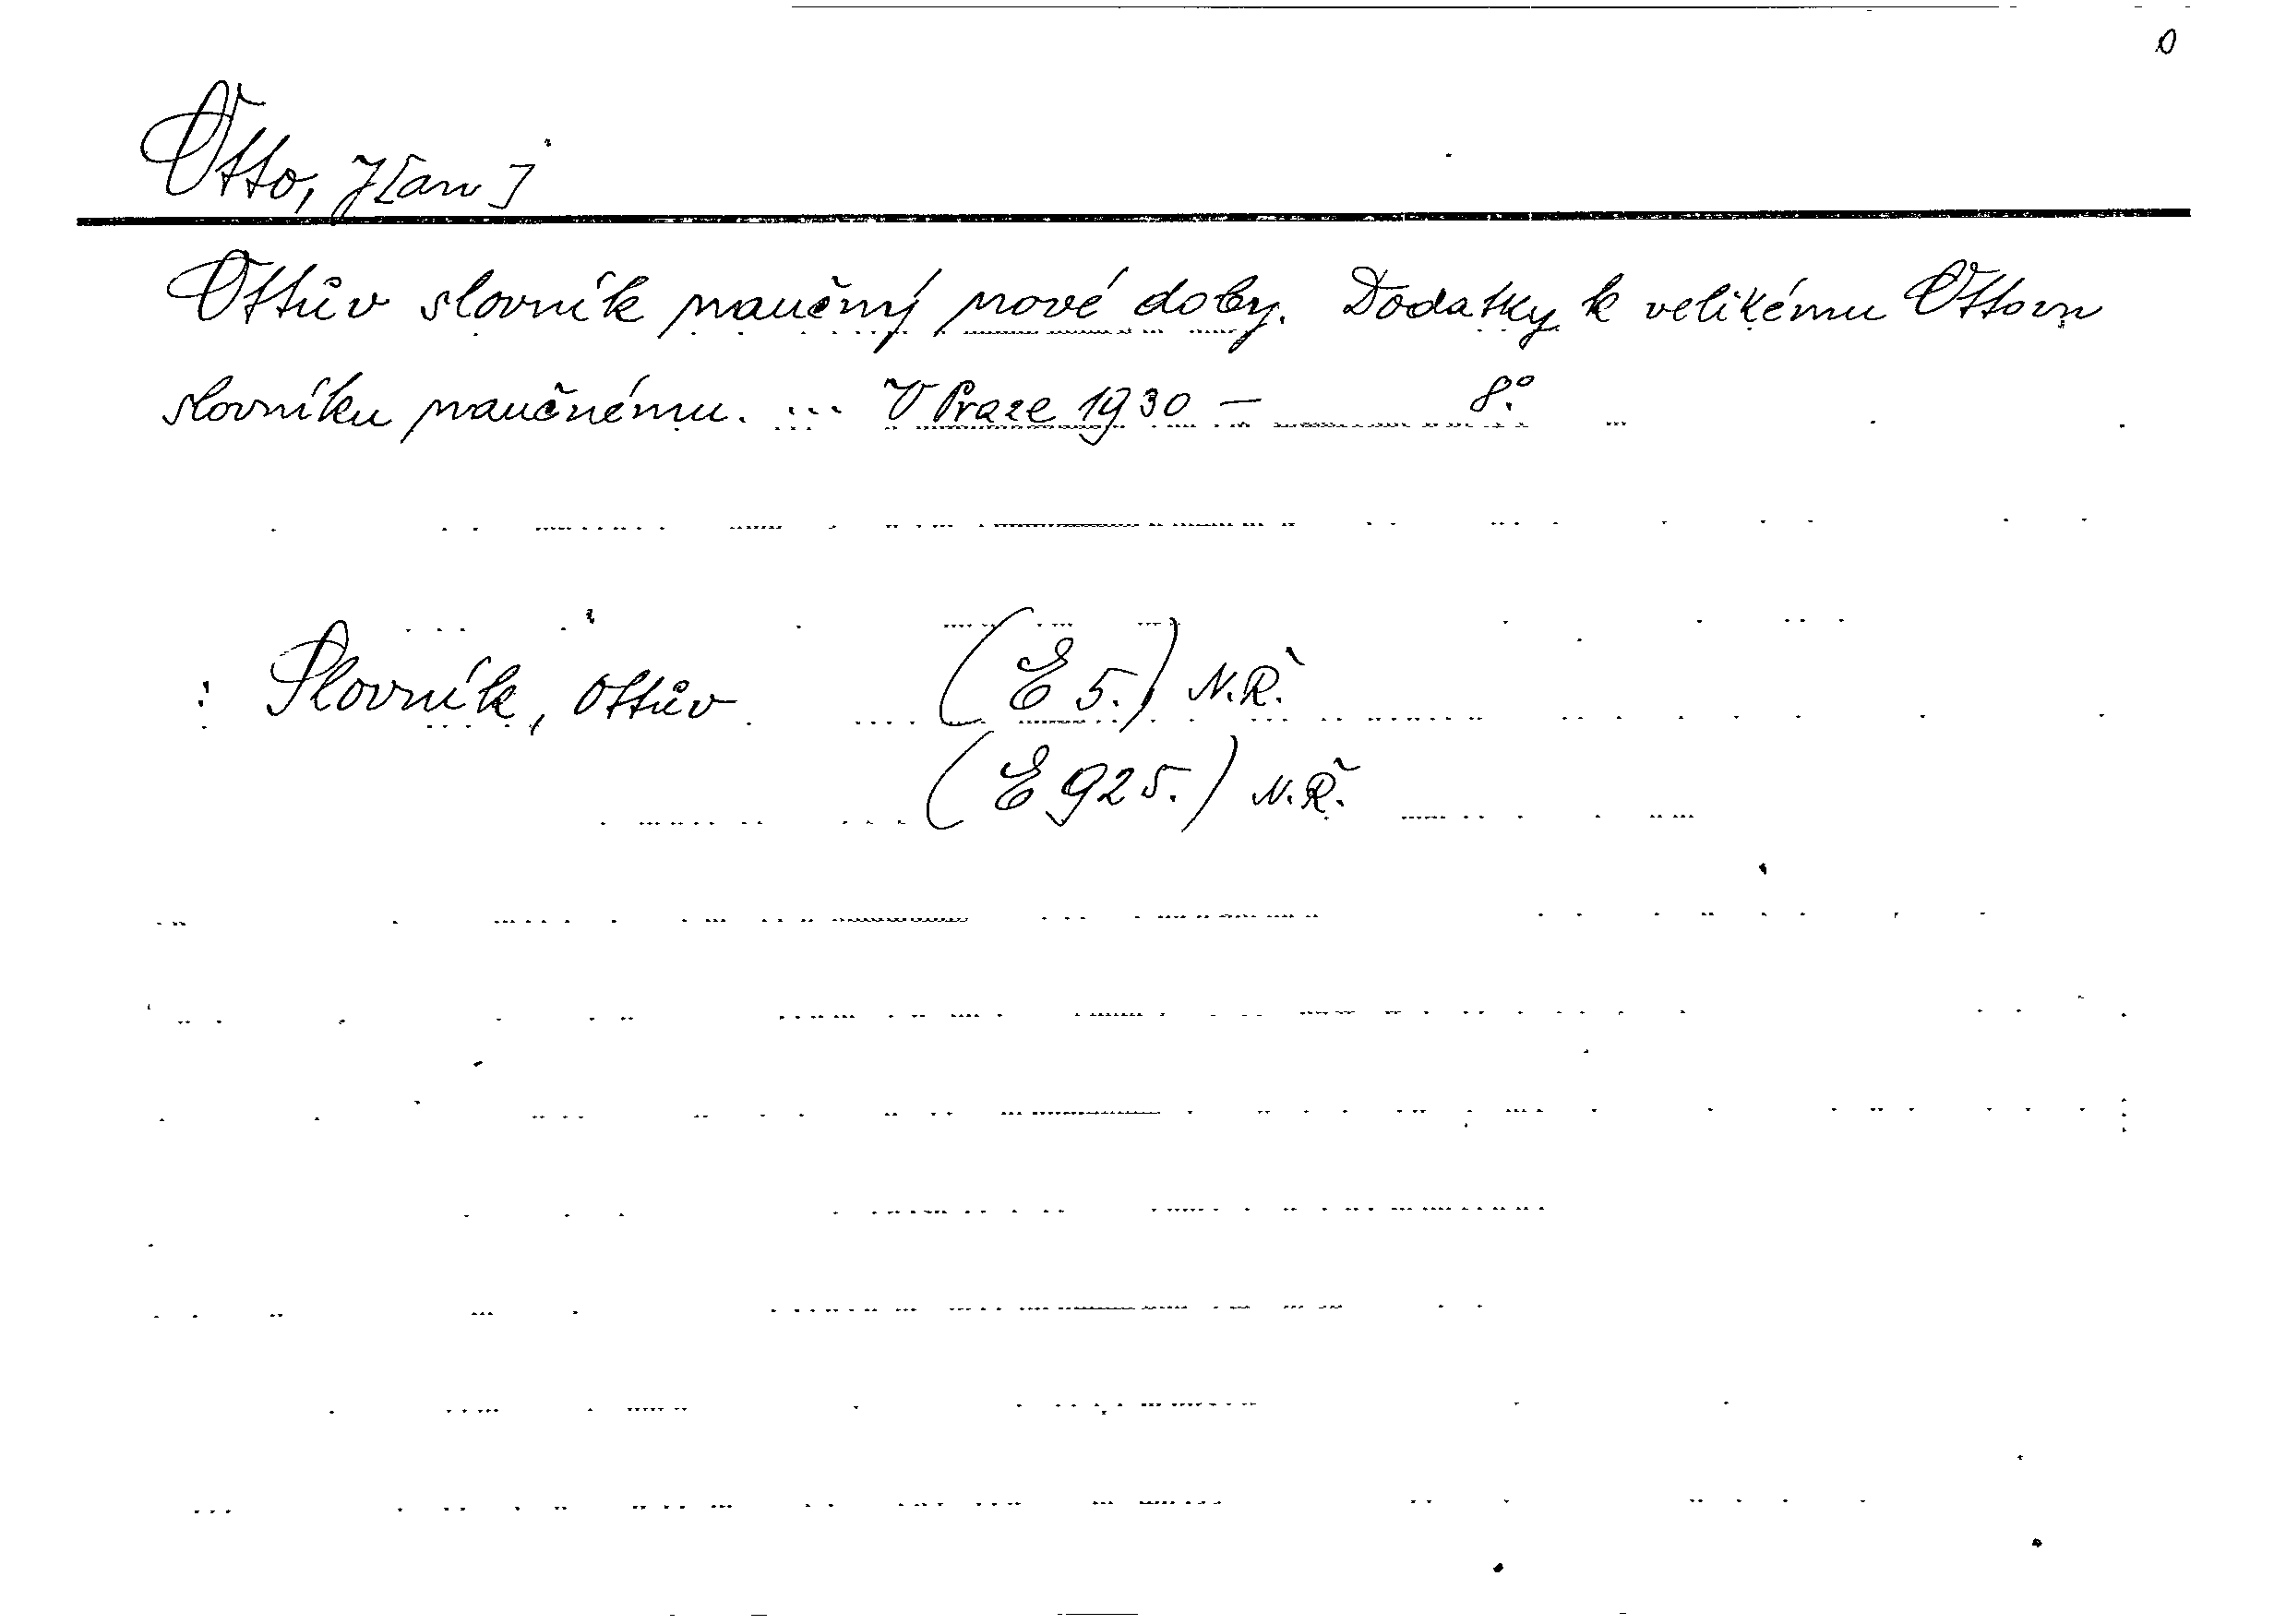 O
Otto, J[an]
Ottův slovník naučný nové doby. Dodatky k velikému Ottovu
slovníku naučnému. ... V Praze 1930 – 8°.
: Slovník, Ottův (E 5.) N.Ř.
(E 925.) N.Ř.